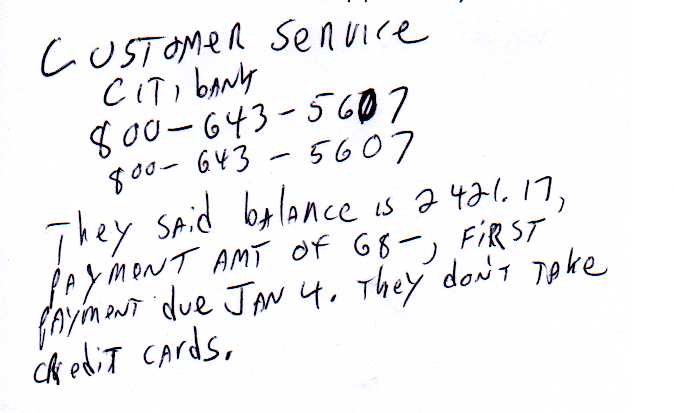 CUSTOMER SERVICE
CITI BANK
800-643-5607
800-643-5607
They SAid bALANCE is 2421.17,
PAYMENT AMT OF 68-, FiRST
PAYMENT due JAN 4. They don't TAke
CRediT CARds.